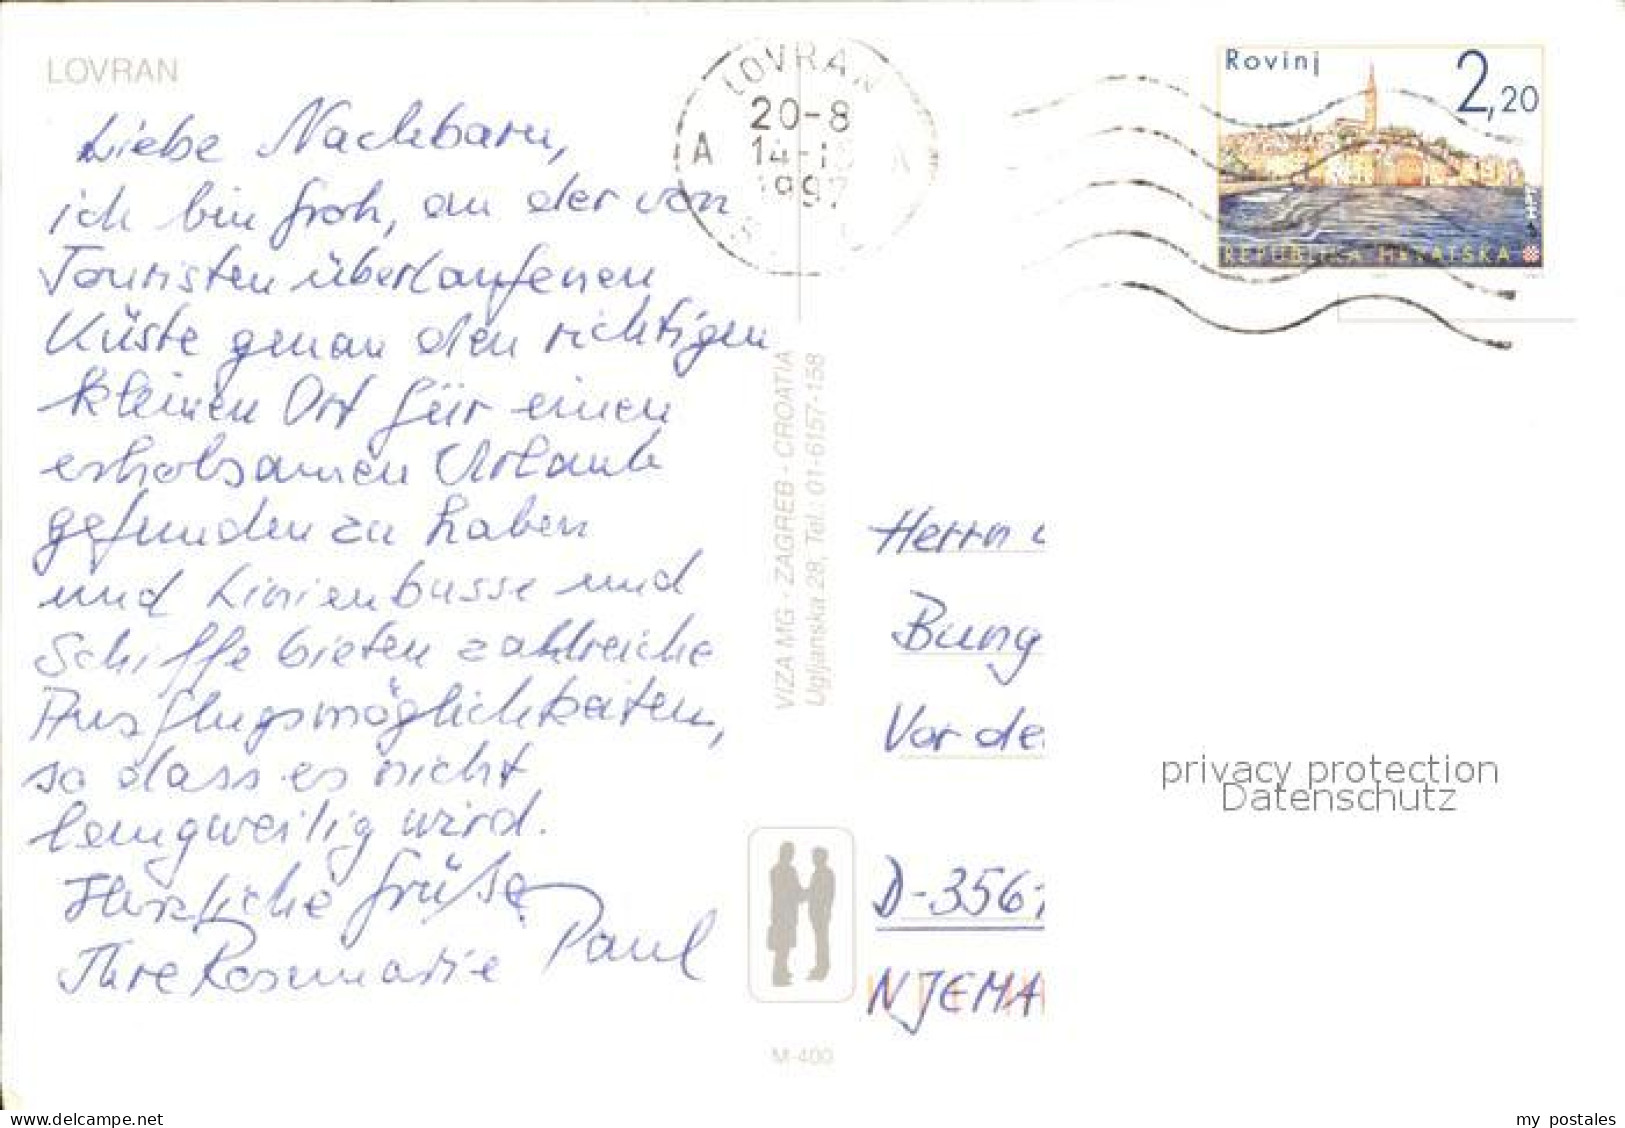 LOVRAN
Liebe Nachbarn,
ich bin froh, an der von
Touristen überlaufenen
Küste genau den richtigen
kleinen Ort für einen
erholsamen Urlaub
gefunden zu haben
und Linienbusse und
Schiffe bieten zahlreiche
Ausflugsmöglichkeiten,
so dass es nicht
langweilig wird.
Herzliche Grüße
Ihre Rosemarie Paul
LOVRAN
20-8
A 14-1 A
1997
Rovinj
2,20
REPUBLIKA HRVATSKA
VIZA MG - ZAGREB - CROATIA
Ugljanska 28, Tel.: 01-6157-158
Herrn
Bung
Vor de
D-3561
NJEMA
M-400
privacy protection
Datenschutz
delcampe.net
my_postales